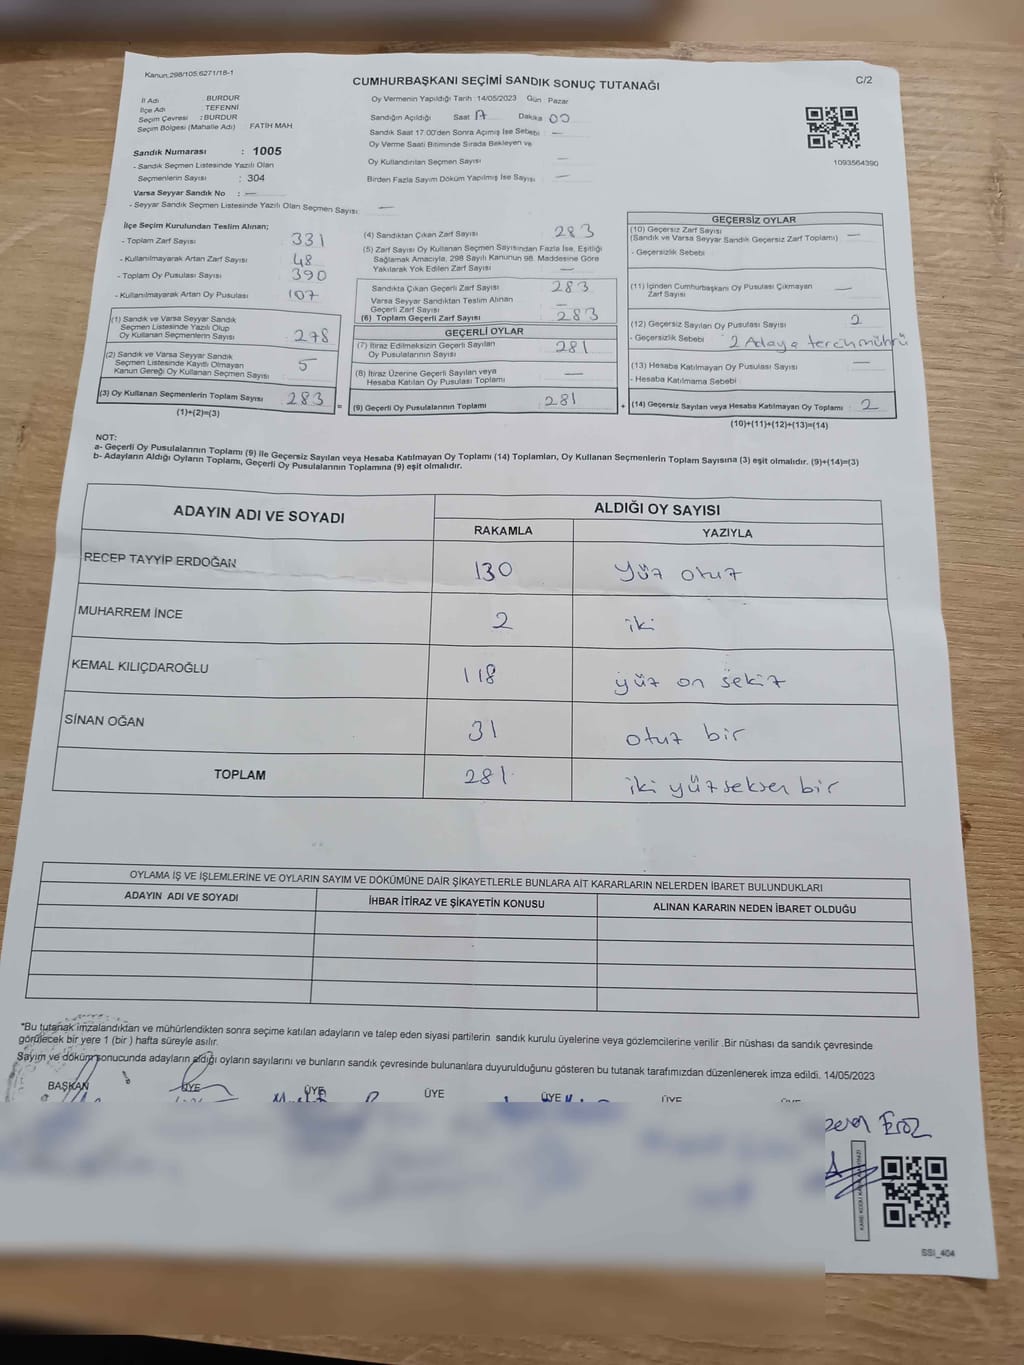 Kanun:298/105;6271/18-1
CUMHURBAŞKANI SEÇİMİ SANDIK SONUÇ TUTANAĞI
C/2
İl Adı : BURDUR
İlçe Adı : TEFENNİ
Seçim Çevresi : BURDUR
Seçim Bölgesi (Mahalle Adı) FATİH MAH.
Oy Vermenin Yapıldığı Tarih :14/05/2023 Gün : Pazar
Sandığın Açıldığı Saat Dakika 00
Sandık Saat 17.00'den Sonra Açımış İse Sebebi : —
Oy Verme Saati Bitiminde Sırada Bekleyen ve
Oy Kullandırılan Seçmen Sayısı —
Birden Fazla Sayım Döküm Yapılmış İse Sayısı —
1093564390
Sandık Numarası : 1005
- Sandık Seçmen Listesinde Yazılı Olan
Seçmenlerin Sayısı : 304
Varsa Seyyar Sandık No : —
- Seyyar Sandık Seçmen Listesinde Yazılı Olan Seçmen Sayısı: —
İlçe Seçim Kurulundan Teslim Alınan;
- Toplam Zarf Sayısı 331
- Kullanılmayarak Artan Zarf Sayısı 48
- Toplam Oy Pusulası Sayısı 390
- Kullanılmayarak Artan Oy Pusulası 107
(1) Sandık ve Varsa Seyyar Sandık
Seçmen Listesinde Yazılı Olup
Oy Kullanan Seçmenlerin Sayısı 278
(2) Sandık ve Varsa Seyyar Sandık
Seçmen Listesinde Kayıtlı Olmayan
Kanun Gereği Oy Kullanan Seçmen Sayısı 5
(3) Oy Kullanan Seçmenlerin Toplam Sayısı 283
(1)+(2)=(3)
(4) Sandıktan Çıkan Zarf Sayısı 283
(5) Zarf Sayısı Oy Kullanan Seçmen Sayısından Fazla İse, Eşitliği
Sağlamak Amacıyla, 298 Sayılı Kanunun 98. Maddesine Göre
Yakılarak Yok Edilen Zarf Sayısı —
Sandıkta Çıkan Geçerli Zarf Sayısı 283
Varsa Seyyar Sandıktan Teslim Alınan
Geçerli Zarf Sayısı —
(6) Toplam Geçerli Zarf Sayısı 283
GEÇERLİ OYLAR
(7) İtiraz Edilmeksizin Geçerli Sayılan
Oy Pusulalarının Sayısı 281
(8) İtiraz Üzerine Geçerli Sayılan veya
Hesaba Katılan Oy Pusulası Toplamı —
= (9) Geçerli Oy Pusulalarının Toplamı 281
GEÇERSİZ OYLAR
(10) Geçersiz Zarf Sayısı
(Sandık ve Varsa Seyyar Sandık Geçersiz Zarf Toplamı) —
- Geçersizlik Sebebi
(11) İçinden Cumhurbaşkanı Oy Pusulası Çıkmayan
Zarf Sayısı —
(12) Geçersiz Sayılan Oy Pusulası Sayısı 2
- Geçersizlik Sebebi 2 Adaya tercih mührü
(13) Hesaba Katılmayan Oy Pusulası Sayısı —
- Hesaba Katılmama Sebebi
+ (14) Geçersiz Sayılan veya Hesaba Katılmayan Oy Toplamı 2
(10)+(11)+(12)+(13)=(14)
NOT:
a- Geçerli Oy Pusulalarının Toplamı (9) ile Geçersiz Sayılan veya Hesaba Katılmayan Oy Toplamı (14) Toplamları, Oy Kullanan Seçmenlerin Toplam Sayısına (3) eşit olmalıdır. (9)+(14)=(3)
b- Adayların Aldığı Oyların Toplamı, Geçerli Oy Pusulalarının Toplamına (9) eşit olmalıdır.
ADAYIN ADI VE SOYADI
ALDIĞI OY SAYISI
RAKAMLA YAZIYLA
RECEP TAYYİP ERDOĞAN 130 yüz otuz
MUHARREM İNCE 2 iki
KEMAL KILIÇDAROĞLU 118 yüz on sekiz
SİNAN OĞAN 31 otuz bir
TOPLAM 281 iki yüz seksen bir
OYLAMA İŞ VE İŞLEMLERİNE VE OYLARIN SAYIM VE DÖKÜMÜNE DAİR ŞİKAYETLERLE BUNLARA AİT KARARLARIN NELERDEN İBARET BULUNDUKLARI
ADAYIN ADI VE SOYADI İHBAR İTİRAZ VE ŞİKAYETİN KONUSU ALINAN KARARIN NEDEN İBARET OLDUĞU
*Bu tutanak imzalandıktan ve mühürlendikten sonra seçime katılan adayların ve talep eden siyasi partilerin sandık kurulu üyelerine veya gözlemcilerine verilir .Bir nüshası da sandık çevresinde
görülecek bir yere 1 (bir ) hafta süreyle asılır.
Sayım ve döküm sonucunda adayların aldığı oyların sayılarını ve bunların sandık çevresinde bulunanlara duyurulduğunu gösteren bu tutanak tarafımızdan düzenlenerek imza edildi. 14/05/2023
BAŞKAN ÜYE ÜYE ÜYE ÜYE ÜYE ÜYE
SSI_404